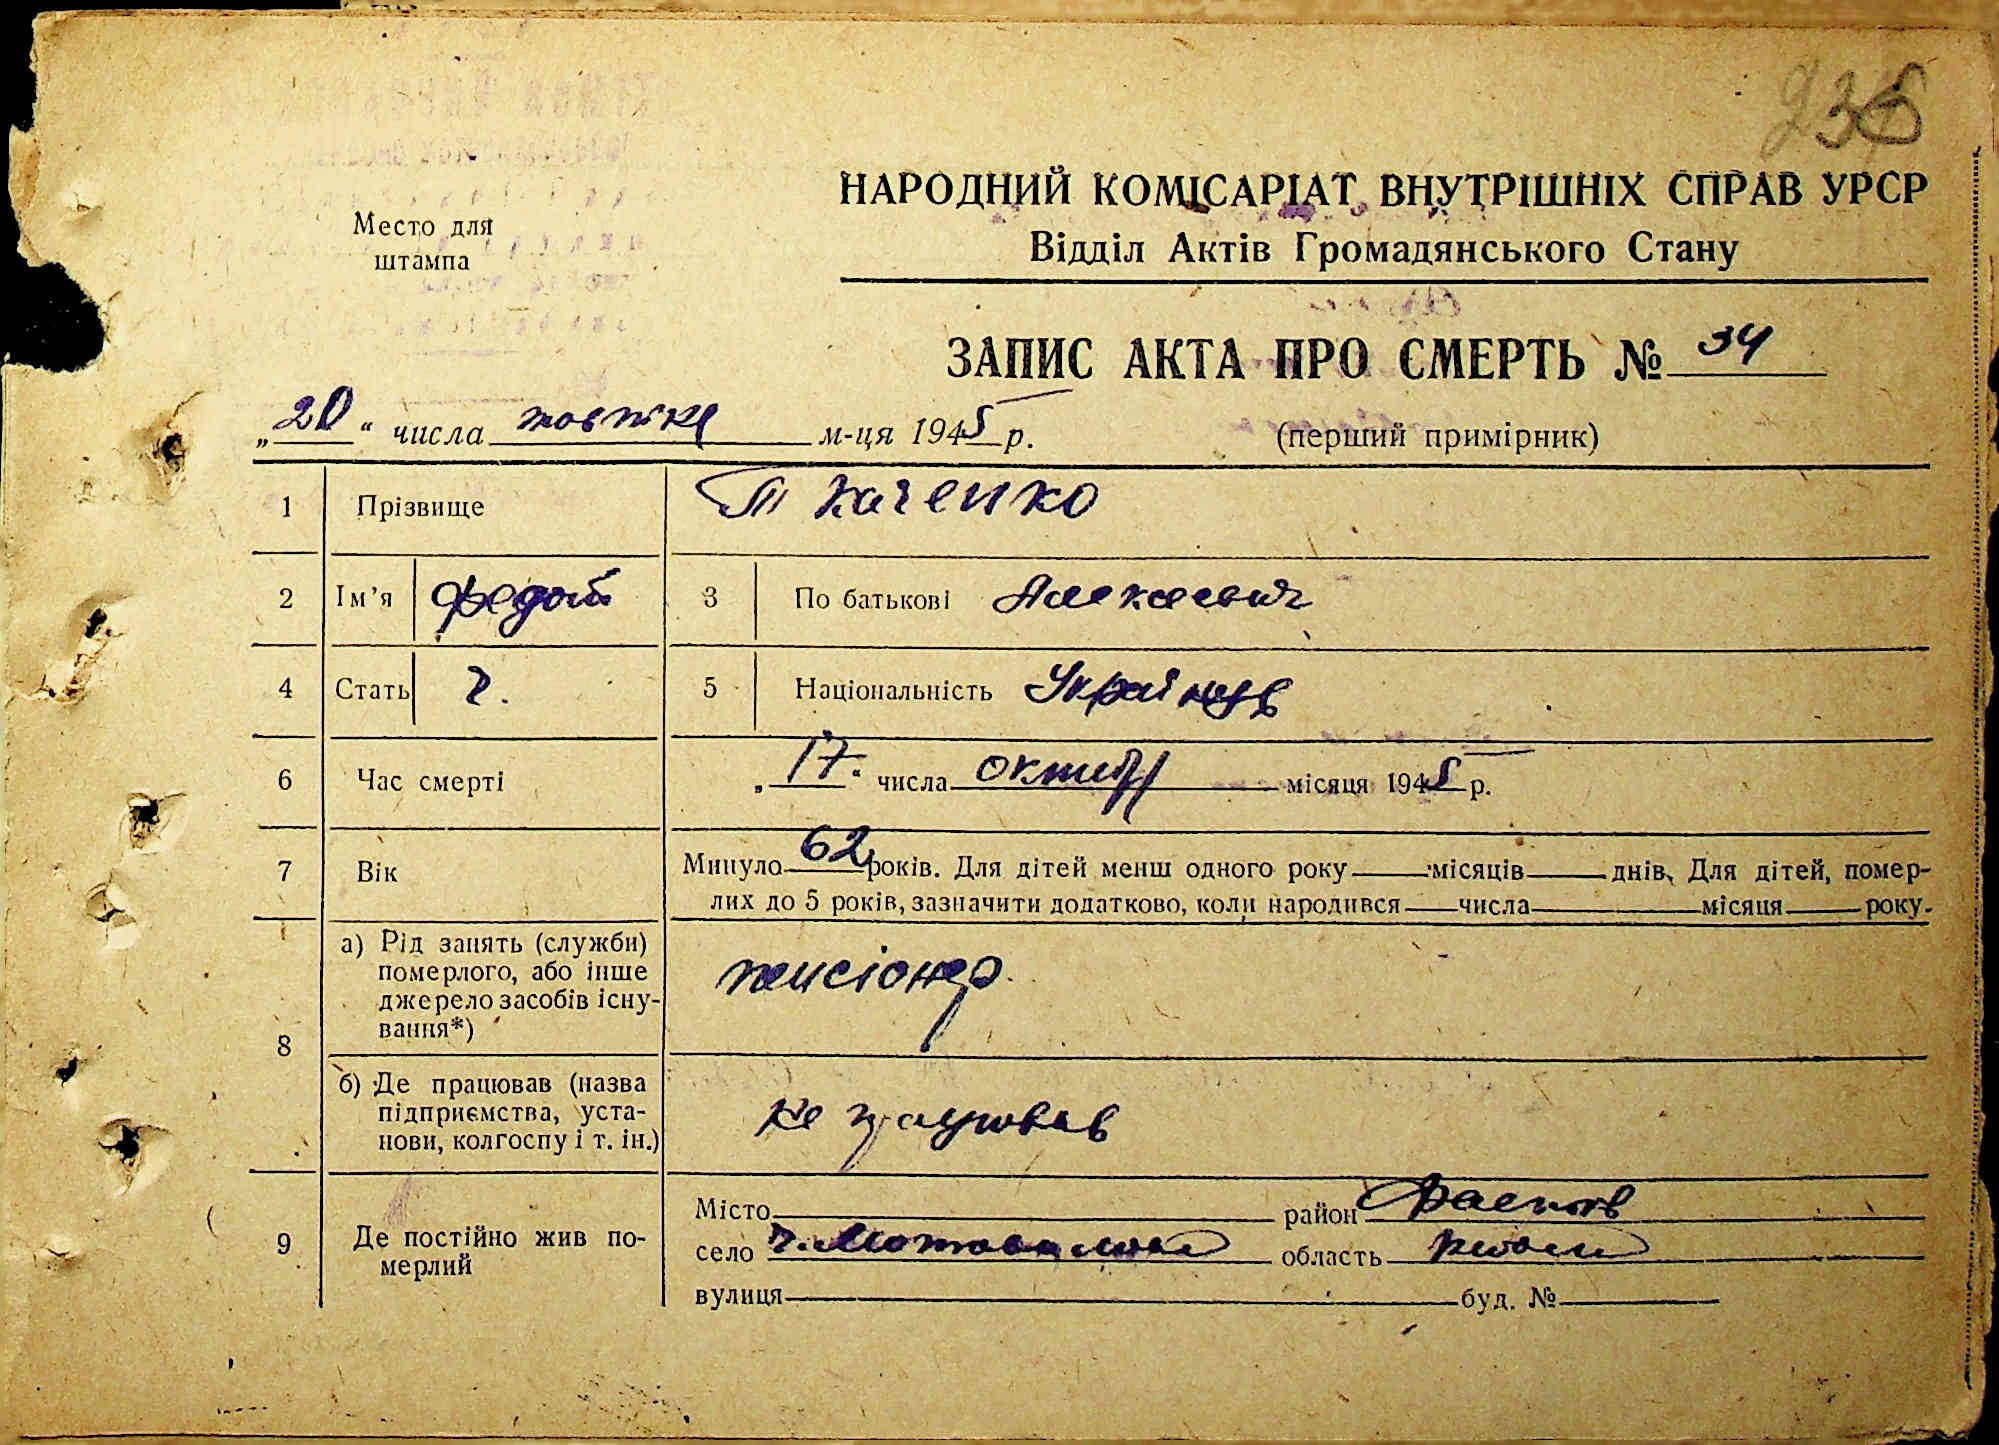 236
НАРОДНИЙ КОМІСАРІАТ ВНУТРІШНІХ СПРАВ УРСР
Відділ Актів Громадянського Стану
Место для
штампа
ЗАПИС АКТА ПРО СМЕРТЬ № 34
„20“ числа жовтня м-ця 1945 р.
(перший примірник)
1 Прізвище Ткаченко
2 Ім’я Федот 3 По батькові Алексеевич
4 Стать ч. 5 Національність Українець
6 Час смерті „17“ числа октября місяця 1945 р.
7 Вік Минуло 62 років. Для дітей менш одного року місяців днів. Для дітей, помер-
лих до 5 років, зазначити додатково, коли народився числа місяця року.
8 а) Рід занять (служби)
померлого, або інше
джерело засобів існу-
вання*)
пенсіонер
б) Де працював (назва
підприємства, уста-
нови, колгоспу і т. ін.)
не працював
9 Де постійно жив по-
мерлий
Місто район Фастів
село область
вулиця буд. №